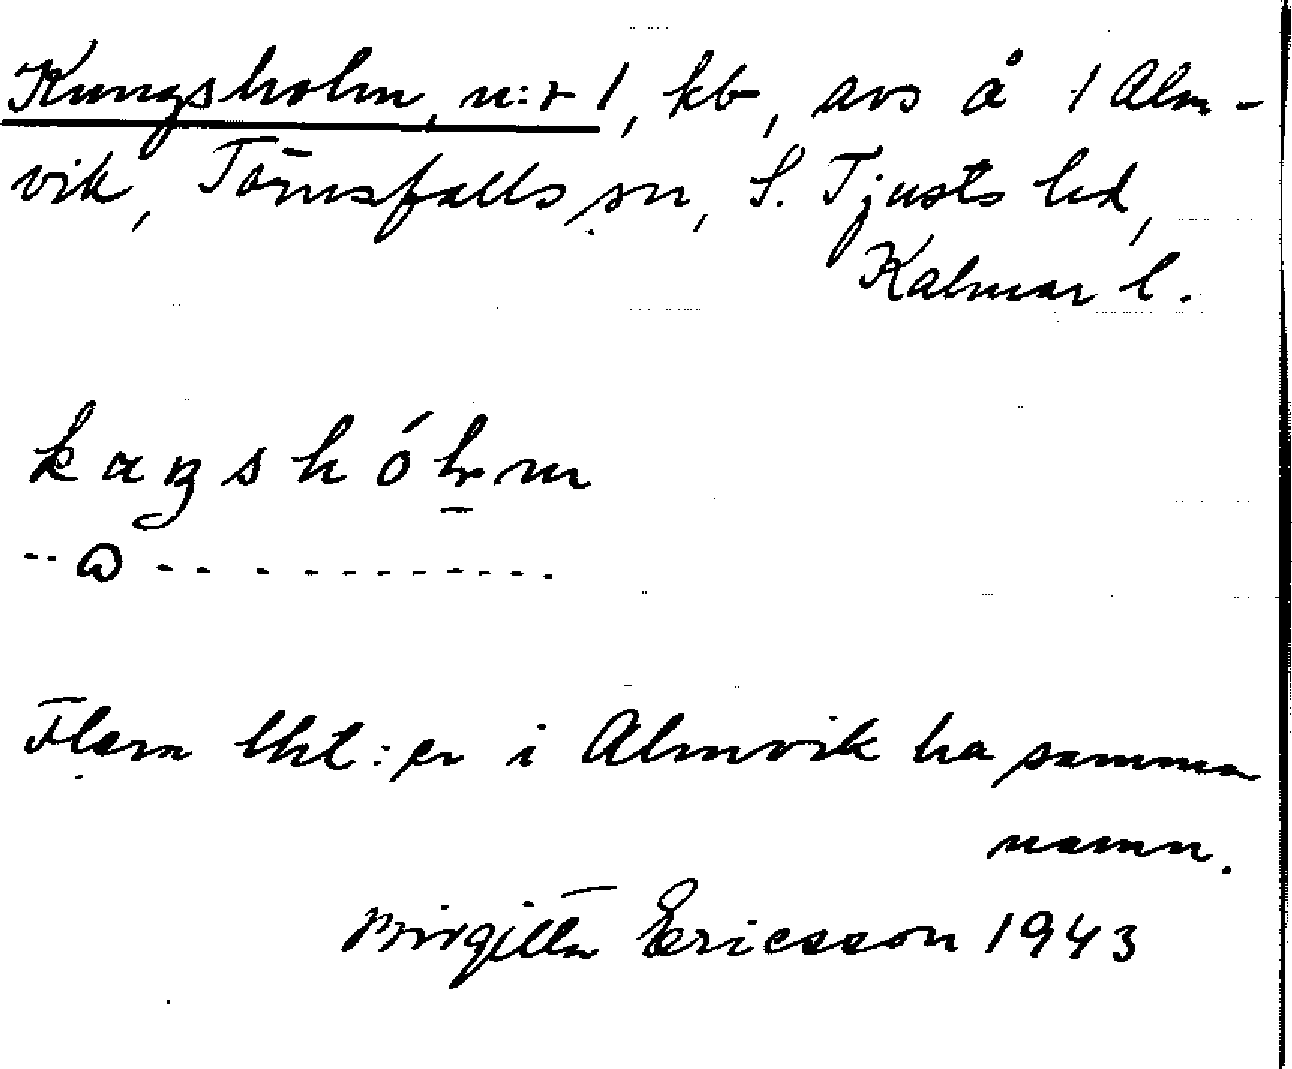 Kungsholm, n:r 1, hb, avs å 1 Alm-
vik, Törnsfalls sn, S. Tjusts hd,
Kalmar l.
kaŋshólm
Flera lht:er i Almvik ha samma
namn.
Birgitta Ericsson 1943